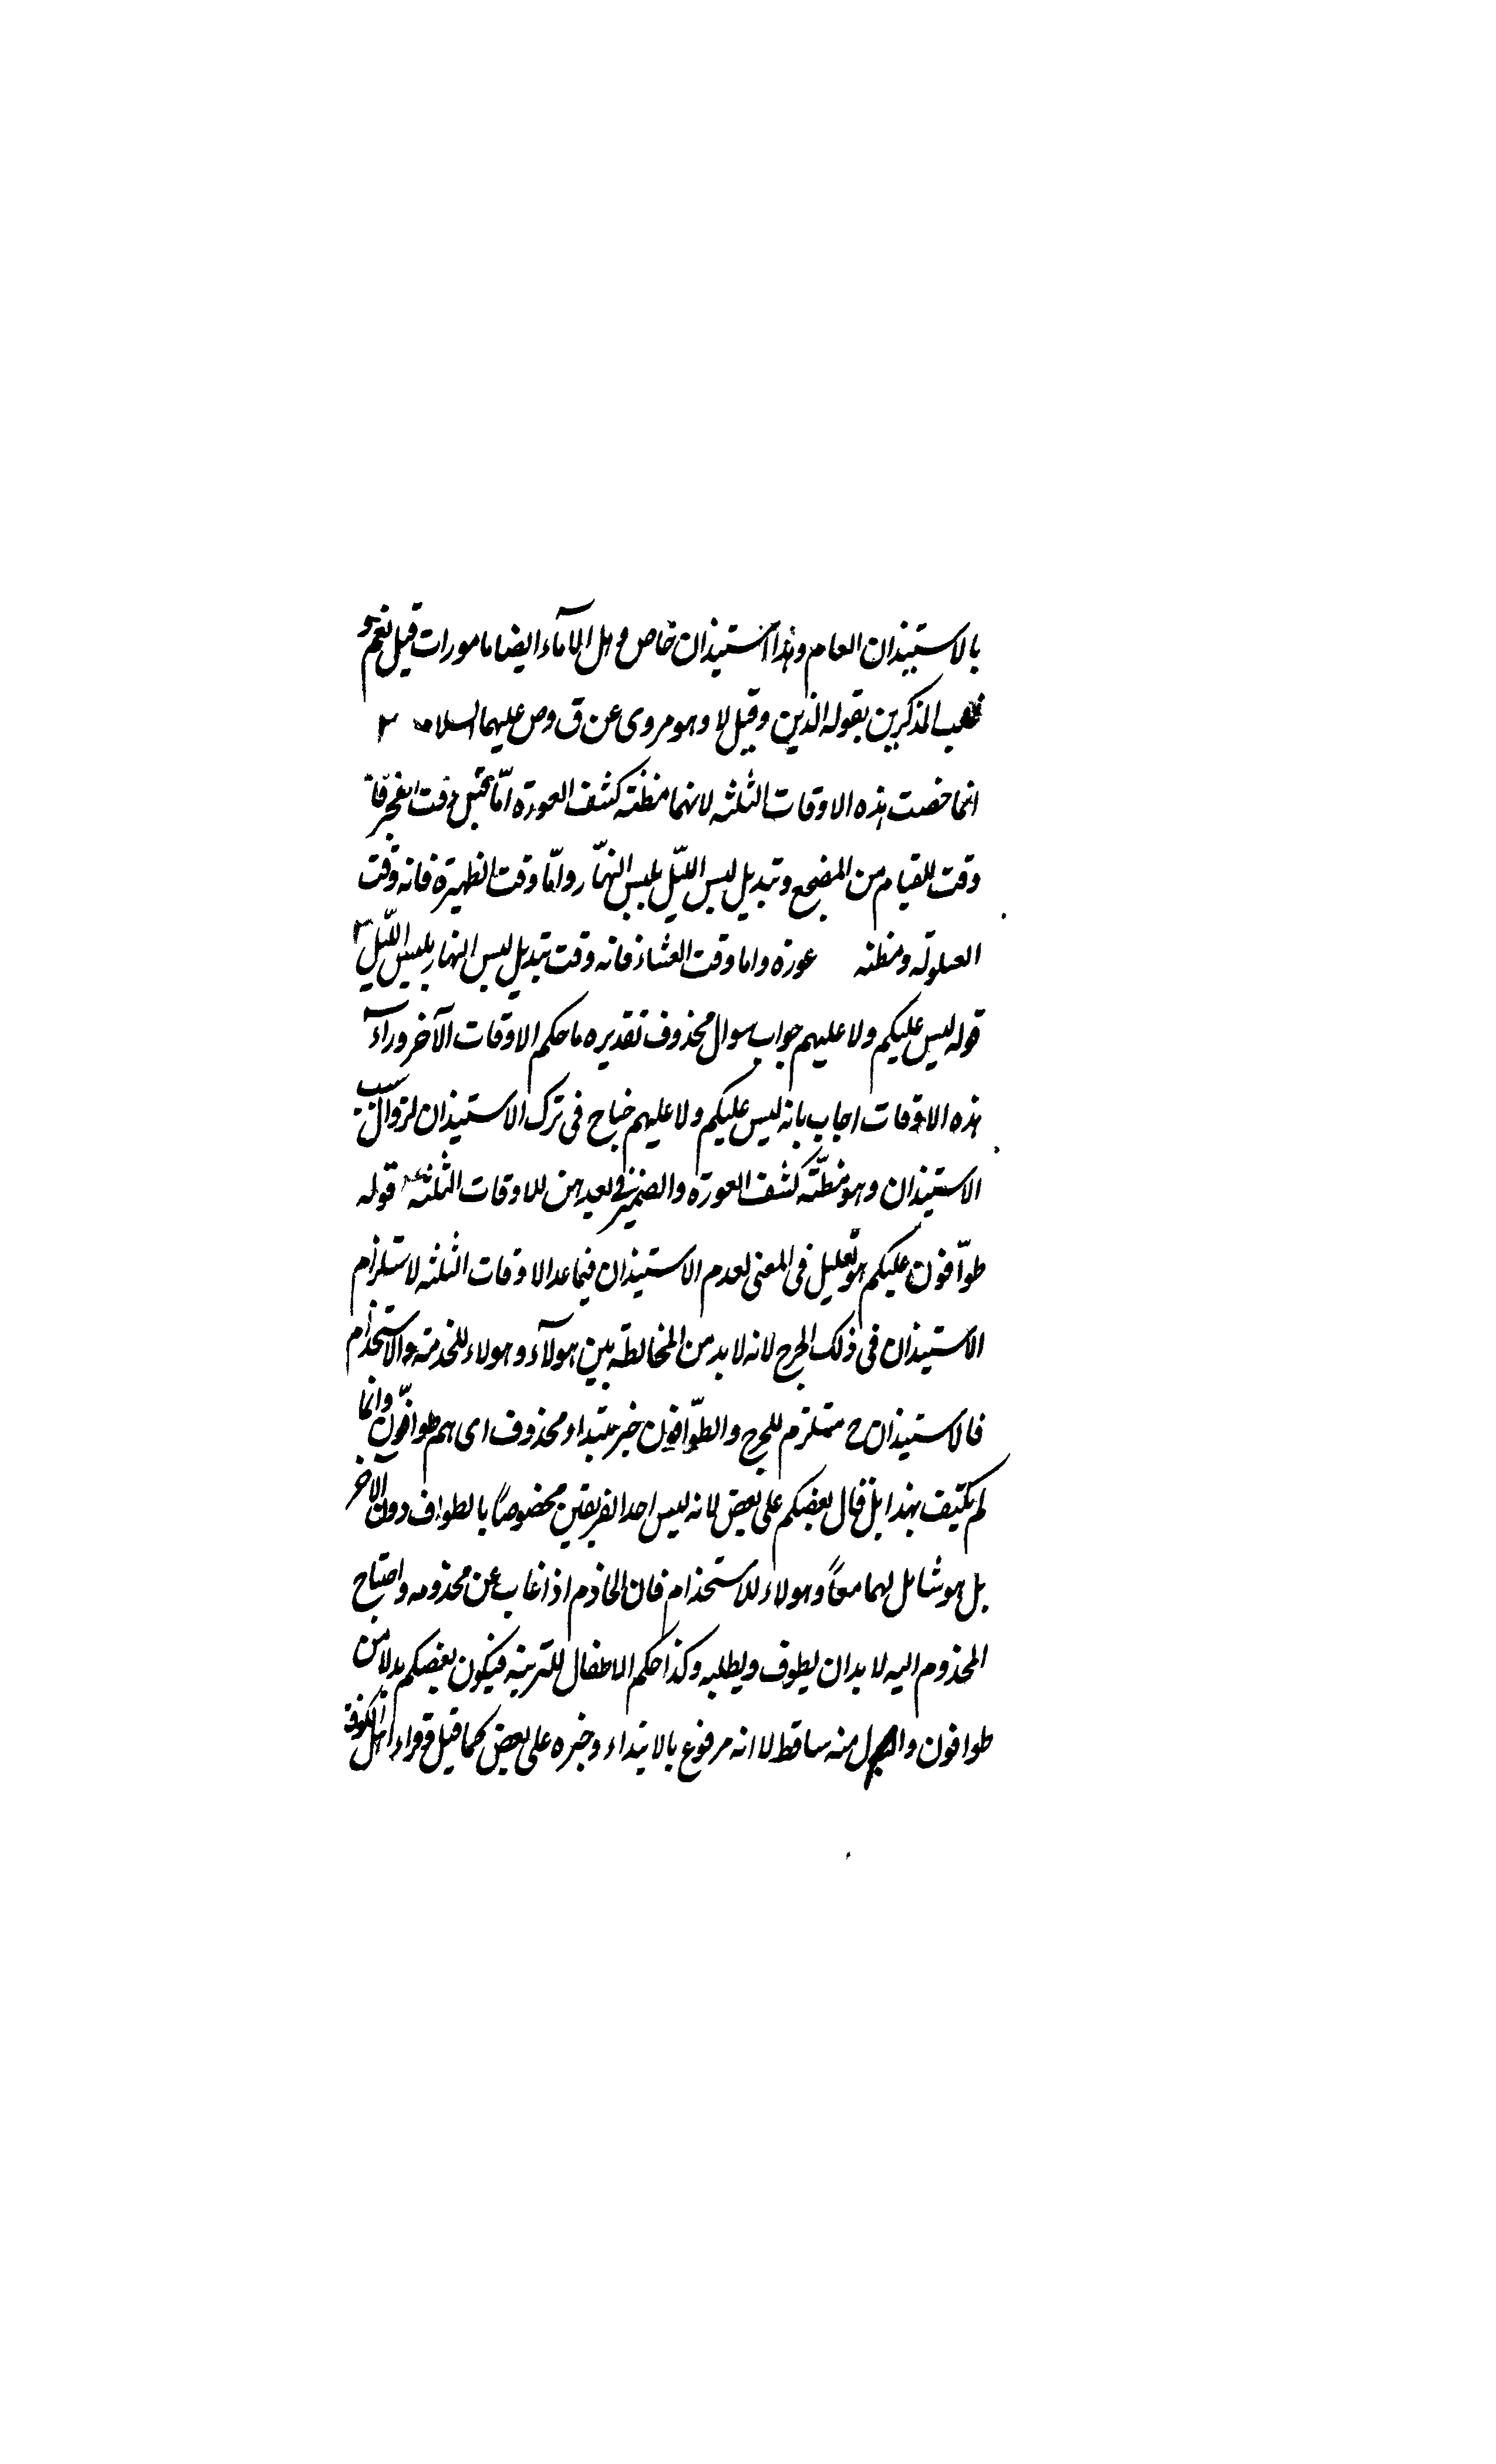 بالاستيذان العام وهذا استيذان خاص وهل الاماء ايضا مامورات قيل نعم و
غلب المذكرين بقوله الذين وقيل لا وهو مروى عن ق وص عليهما السلام ٢
انما خصت هذه الاوقات الثلثه لانهما مظنة كشف العورة امّا قبل وقت الفجر فانه
وقت للقيام من المضجع وتبديل لبس الليّل بلبس النهّار وامّا وقت الظهيرة فانه وقت
العيلولة ومظنه عورة واما وقت العشاء فانه وقت تبديل لبس النهار بلبس اللّيل ٣
قوله ليس عليكم ولا عليهم جواب سوال محذوف تقديره ما حكم الاوقات الآخر ورآء
هذه الاوقات اجاب بانه ليس عليكم ولا عليهم جناح فى ترك الاستيذان لزوال سبب
الاستيذان وهو مظنّة كشف العورة والضمير فى بعدهن للاوقات الثلثه ٤ قوله
طوّافون عليكم هو تعليل فى المعنى لعدم الاستيذان فيما عدا الاوقات الثلثه لاستلزام
الاستيذان فى ذلك الحرج لانه لا بد من المخالطة بين هولآء وهولاء للخدمة والاستخدام
فالاستيذان ح مستلزم للحرج والطوّافون خبر مبتداء محذوف اى هم طوافّون وانما
لم يكتف بهذا بل قال بعضكم على بعض لانه ليس احد الفريقين مخصوصاً بالطواف دون الآخر
بل هو شامل لهما معاً وهولاء للاستخدام فان الخادم اذا غاب عن مخدومه واحتاج
المخدوم اليه لا بد ان يطوف ويطلبه وكذا حكم الاطفال للتربية فيكون بعضكم بدلا من
طوافون والمبدل منه ساقط لا انه مرفوع بالابتداء وخبره على بعض كما قيل وقراء اهل الكوفة